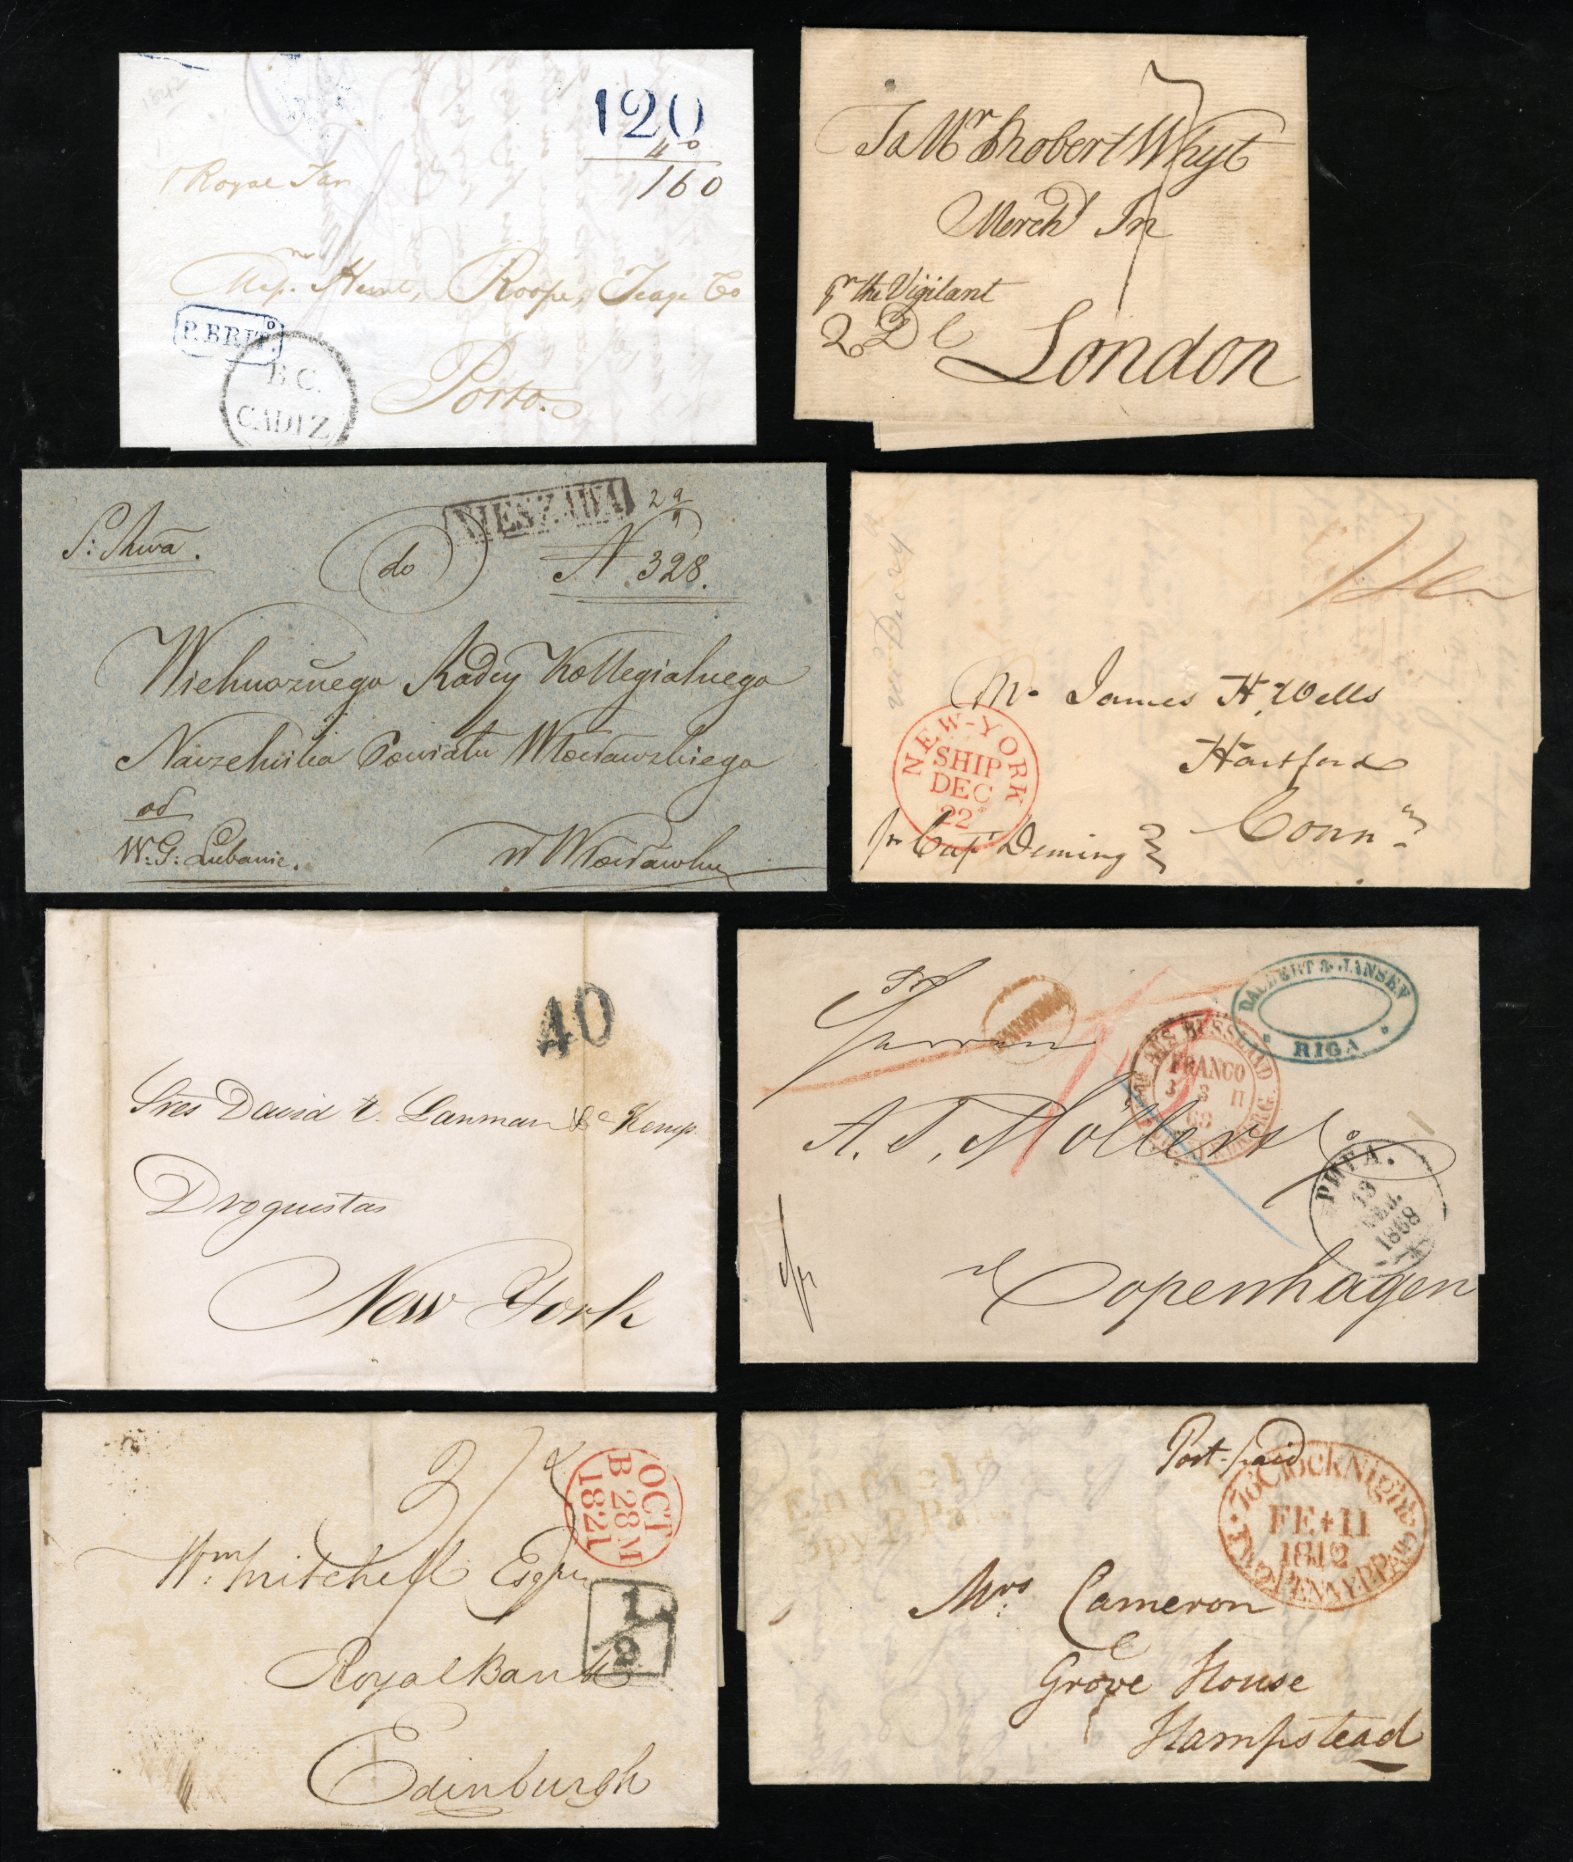 1842
120
40
160
Royal Tar
Hunt, Roope, Teage Co
P. BRITº.
B.C.
CADIZ
Porto.
To Mr Robert Whyt
Merchᵗ In
pʳ the Vigilant
London
NIESZAWA
do
N 328.
Wielmożnego Radcy Kollegialnego
Naczelnika Powiatu Włocławskiego
od
W: G: Lubanie.
w Włocławku
Mr James H. Wells
Hartford
Conn
NEW-YORK
SHIP
DEC
22
pr Capt Deming
40
Sres David t. Lanman & Kemp
Droguistas
New York
DALBERT & JANSEN
RIGA
AUS RUSSLAND
FRANCO
Herrn
A. T. Möllers
РИГА.
13
1868
Copenhagen
3/
OCT
B 28 M
1821
Wm Mitchell Esqre
1/2
Royal Bank
Edinburgh
Post-paid
7oClock Night
FE+11
1812
TWOPENNY P.P
Mrs Cameron
Grove House
Hampstead